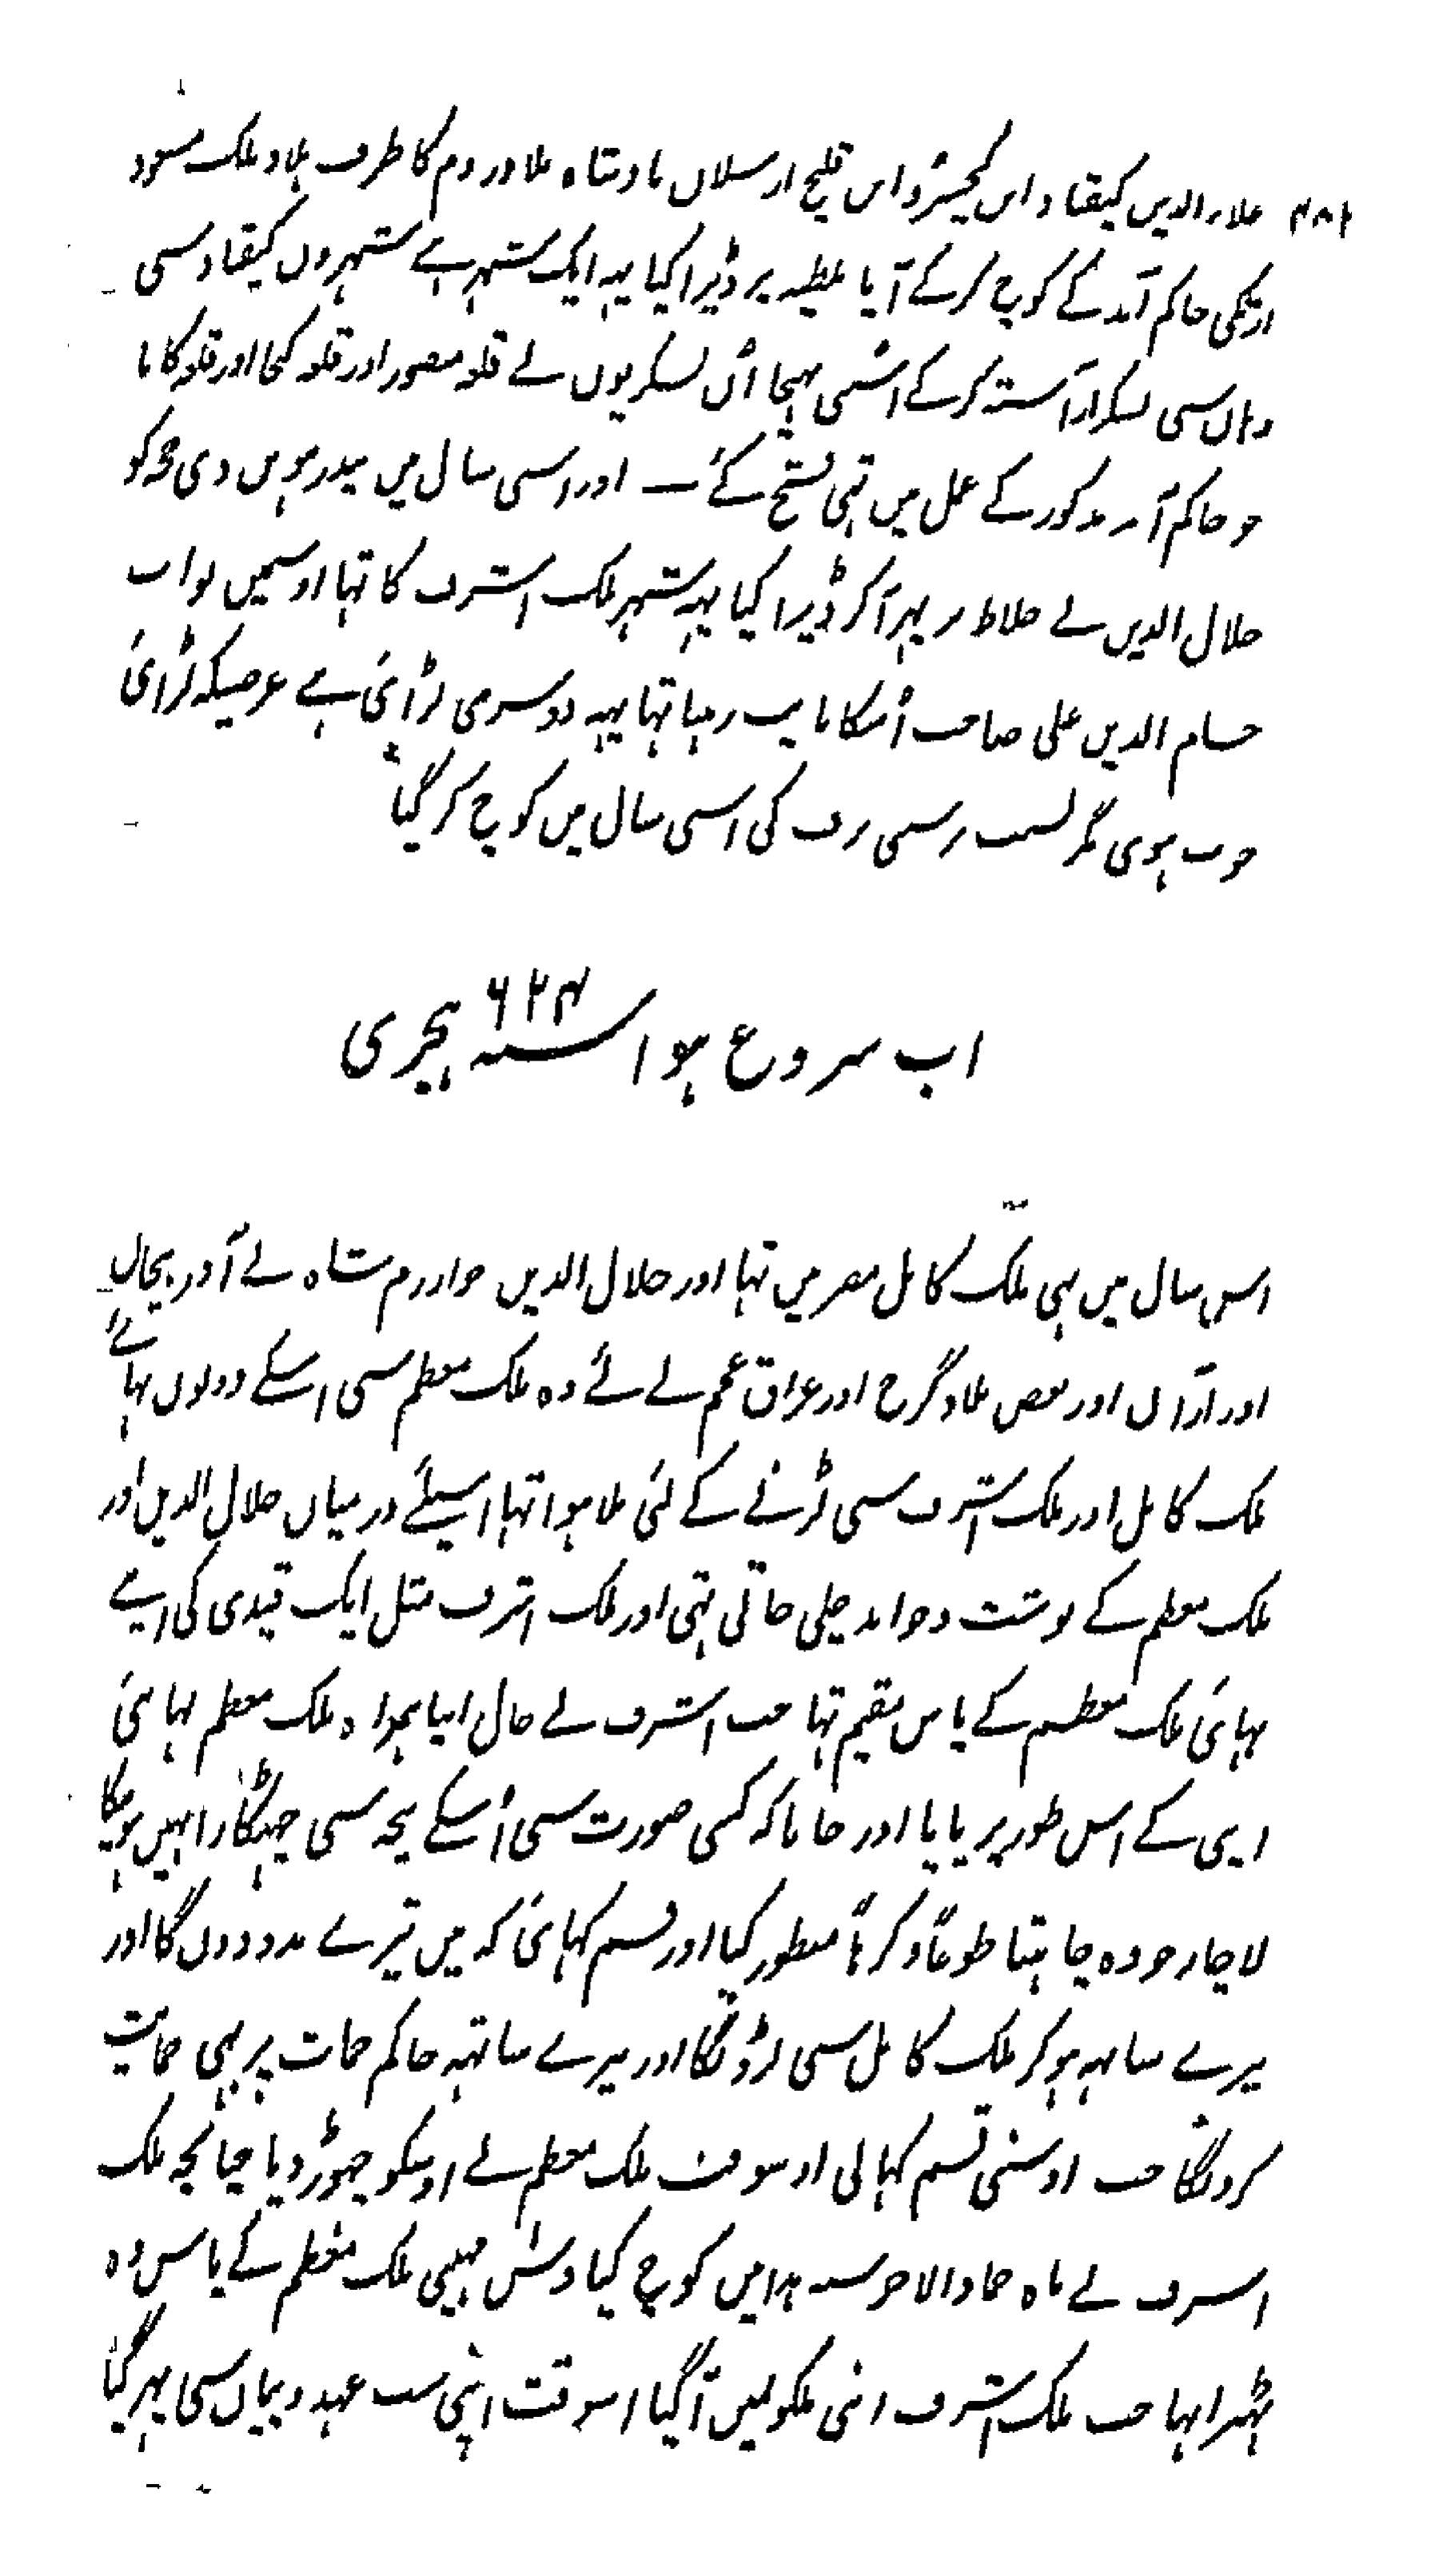 ۴۸۲ علاء الدین کیقباد ابن کیخسرو ابن قلیج ارسلان بادشاہ بلاد روم کا طرف بلاد ملک مسعود
ارتکی حاکم آمد کے کوچ کر کے آیا ملطیہ پر ڈیرا کیا یہہ ایک شہر ہے شہروں کیقباد سی
وہاں سی لشکر آراستہ کر کے اسنی بہیجا اُن لشکریوں نے قلعہ منصور اور قلعہ کختا اور قلعہ کا با
جو حاکم آمد مذکور کے عمل میں تہی فتح کئے ۔ اور اسی سال میں پندرہویں ذی حجہ کو
جلال الدین نے خلاط پر پہر آکر ڈیرا کیا یہہ شہر ملک اشرف کا تہا اوسمیں نواب
حسام الدین علی حاجب اُسکا نایب رہتا تہا یہہ دوسری لڑائی ہے غرضیکہ لڑائی
خوب ہوی مگر بسبب برف کی اسی سال میں کوچ کر گیا
اب شروع ہوا سنہ ۶۲۴ ہجری
اس سال میں بہی ملک کامل مصر میں تہا اور جلال الدین خوارزم شاہ نے آذربیجان
اور ارّان اور بعض بلاد گرج اور عراق عجم لے لئے وہ ملک معظم سی اسکے دونوں بہائے
ملک کامل اور ملک اشرف سی لڑنے کے لئی ملا ہوا تہا اسیلئے درمیان جلال الدین اور
ملک معظم کے نوشت و خواند چلی جاتی تہی اور ملک اشرف مثل ایک قیدی کی اپنے
بہائی ملک معظم کے پاس مقیم تہا جب اشرف نے حال اپنا ہمراہ ملک معظم بہائی
اپنی کے اس طور پر پایا اور جانا کہ کسی صورت سی اُسکے پنجہ سی چہٹکارا نہیں ہو سکا
لاچار جو وہ چاہتا طوعاً و کرہاً منظور کیا اور قسم کہائی کہ میں تیرے مدد دوں گا اور
تیرے ساتہہ ہو کر ملک کامل سی لڑونگا اور تیرے ساتہہ حاکم حمات پر بہی حمایت
کرونگا جب اوسنی قسم کہا لی اوسوقت ملک معظم نے اوسکو چہوڑ دیا چنانچہ ملک
اشرف نے ماہ جماد الاخر سنہ ہذا میں کوچ کیا دس مہینی ملک معظم کے پاس وہ
ٹہرا تہا جب ملک اشرف اپنی ملکونمیں آگیا اسوقت اپنی سب عہد و پیماں سی پہر گیا